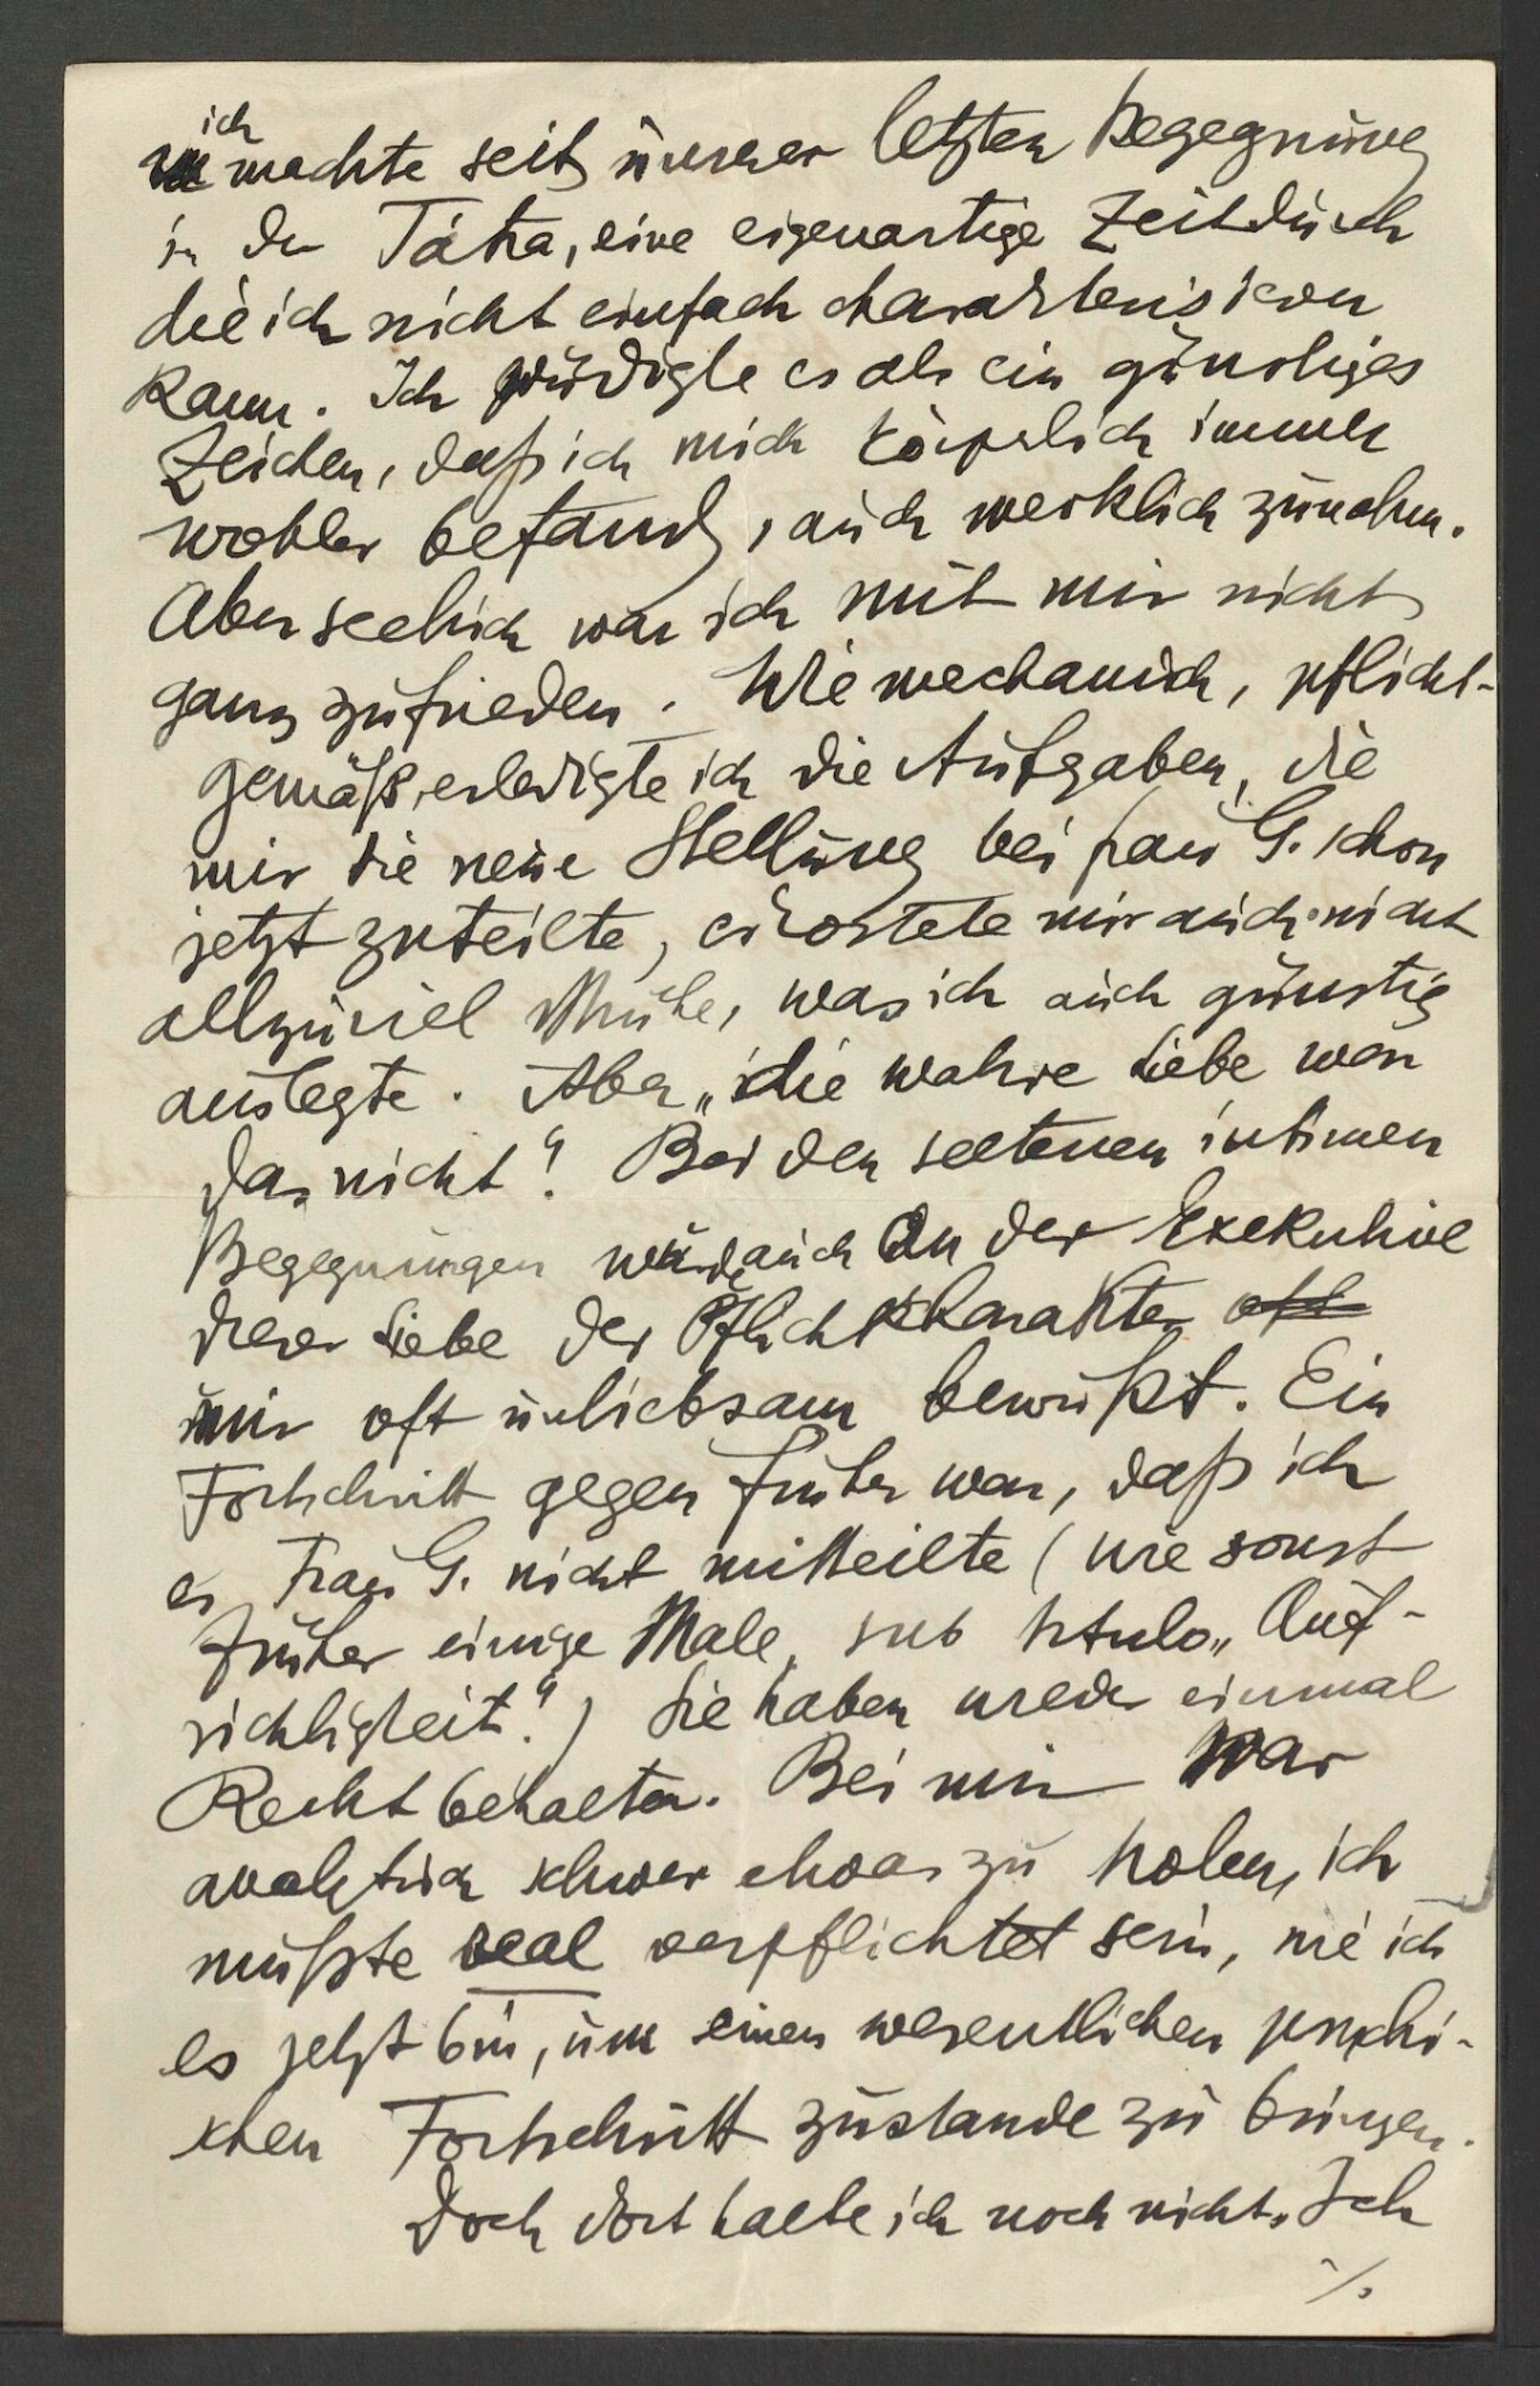 ich
machte seit unserer letzten Begegnung
in der Tátra, eine eigenartige Zeit durch
die ich nicht einfach charakterisieren
kann. Ich würdigte es als ein günstiges
Zeichen, daß ich mich körperlich immer
wohler befand, auch merklich zunahm.
Aber seelisch war ich mit mir nicht
ganz zufrieden. Wie mechanisch, pflicht-
gemäß, erledigte ich die Aufgaben, die
mir die neue Stellung bei Frau G. schon
jetzt zuteilte, es kostete mir auch nicht
allzuviel Mühe, was ich auch günstig
auslegte. Aber „die wahre Liebe war
das nicht“! Bei den seltenen intimen
Begegnungen wurde auch an der Exekutive
dieser Liebe der Pflichtcharakter oft
mir oft unliebsam bewußt. Ein
Fortschritt gegen früher war, daß ich
es Frau G. nicht mitteilte (wie sonst
früher einige Male, sub titulo „Auf-
richtigkeit“.) Sie haben wieder einmal
Recht behalten. Bei mir war
analytisch schwer etwas zu holen, ich
mußte real verpflichtet sein, wie ich
es jetzt bin, um einen wesentlichen psychi-
schen Fortschritt zustande zu bringen.
Doch dort halte ich noch nicht. Ich
./.